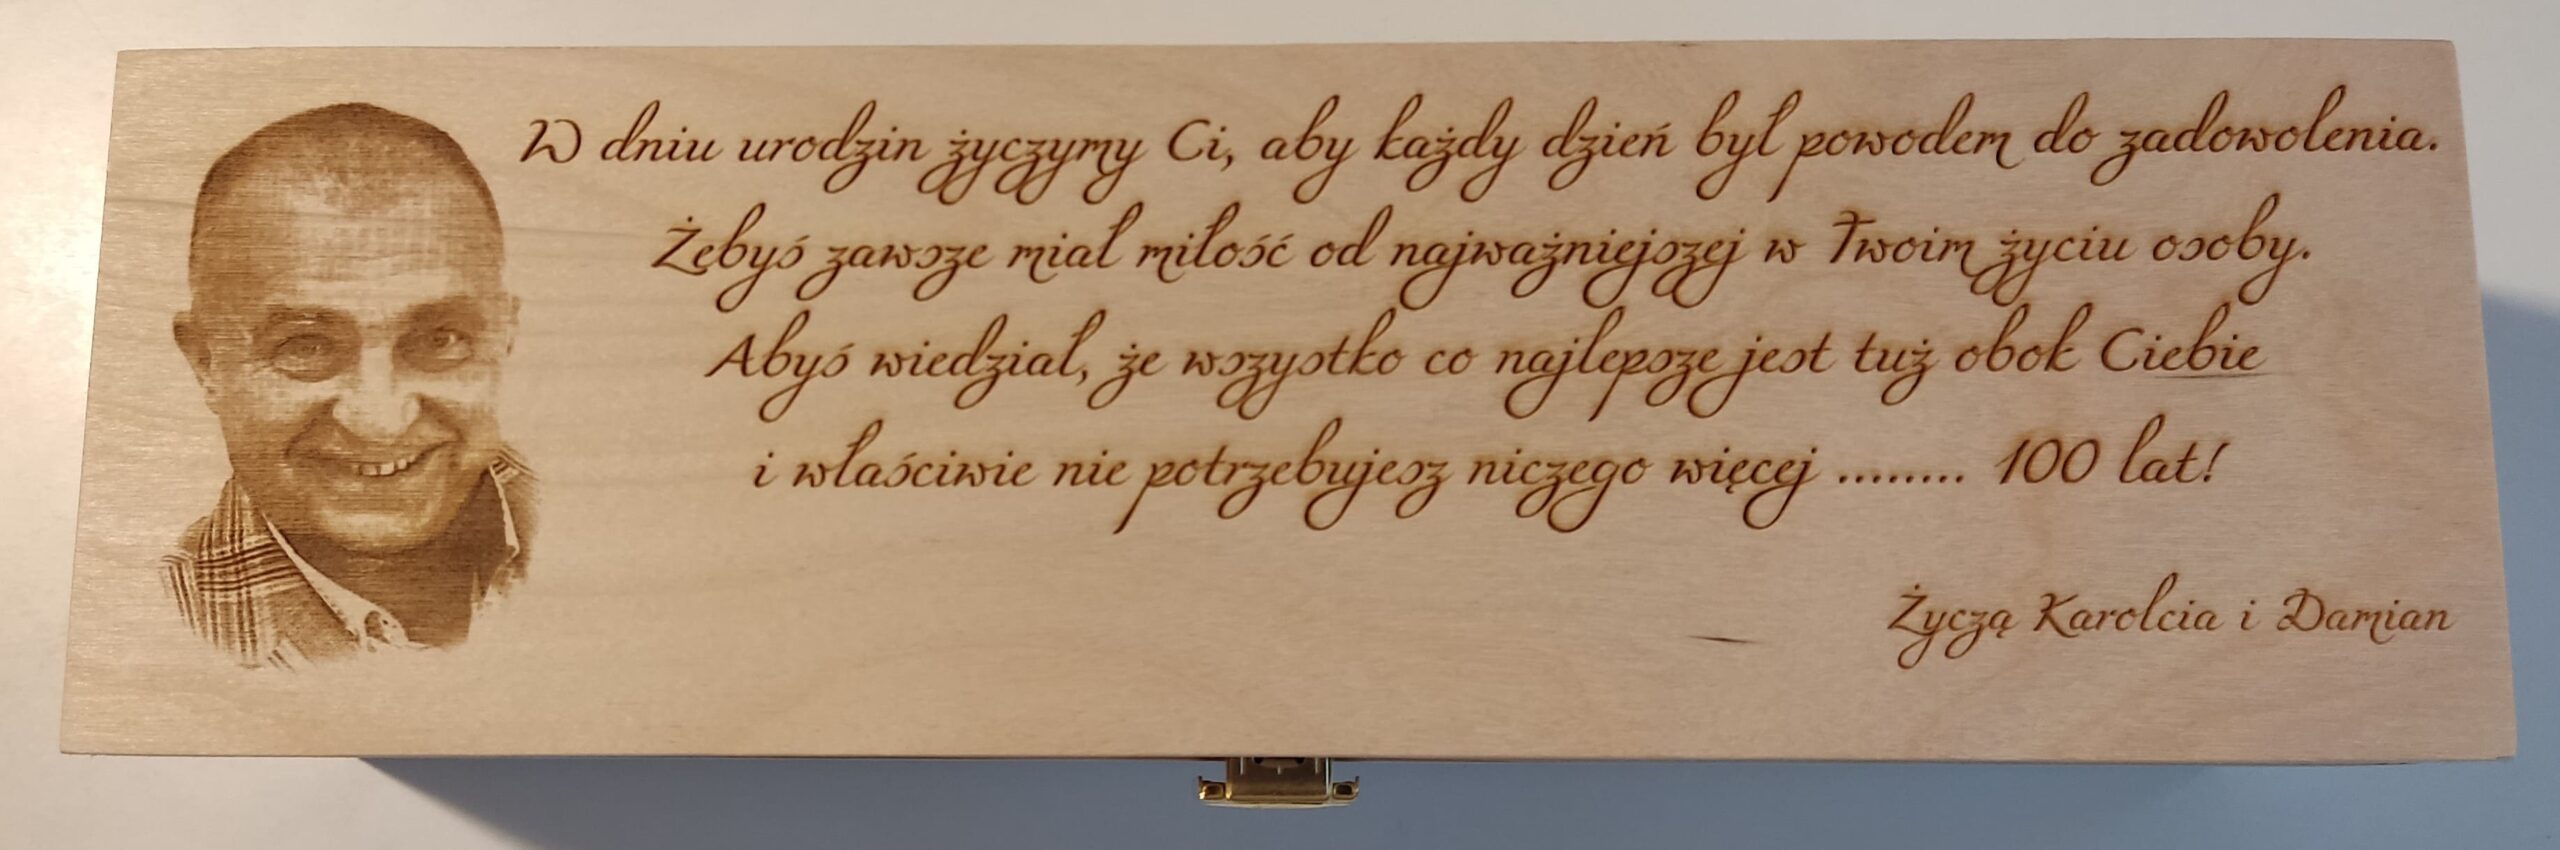 W dniu urodzin życzymy Ci, aby każdy dzień był powodem do zadowolenia.
Żebyś zawsze miał miłość od najważniejszej w Twoim życiu osoby.
Abyś wiedział, że wszystko co najlepsze jest tuż obok Ciebie
i właściwie nie potrzebujesz niczego więcej ........ 100 lat!
Życzą Karolcia i Damian